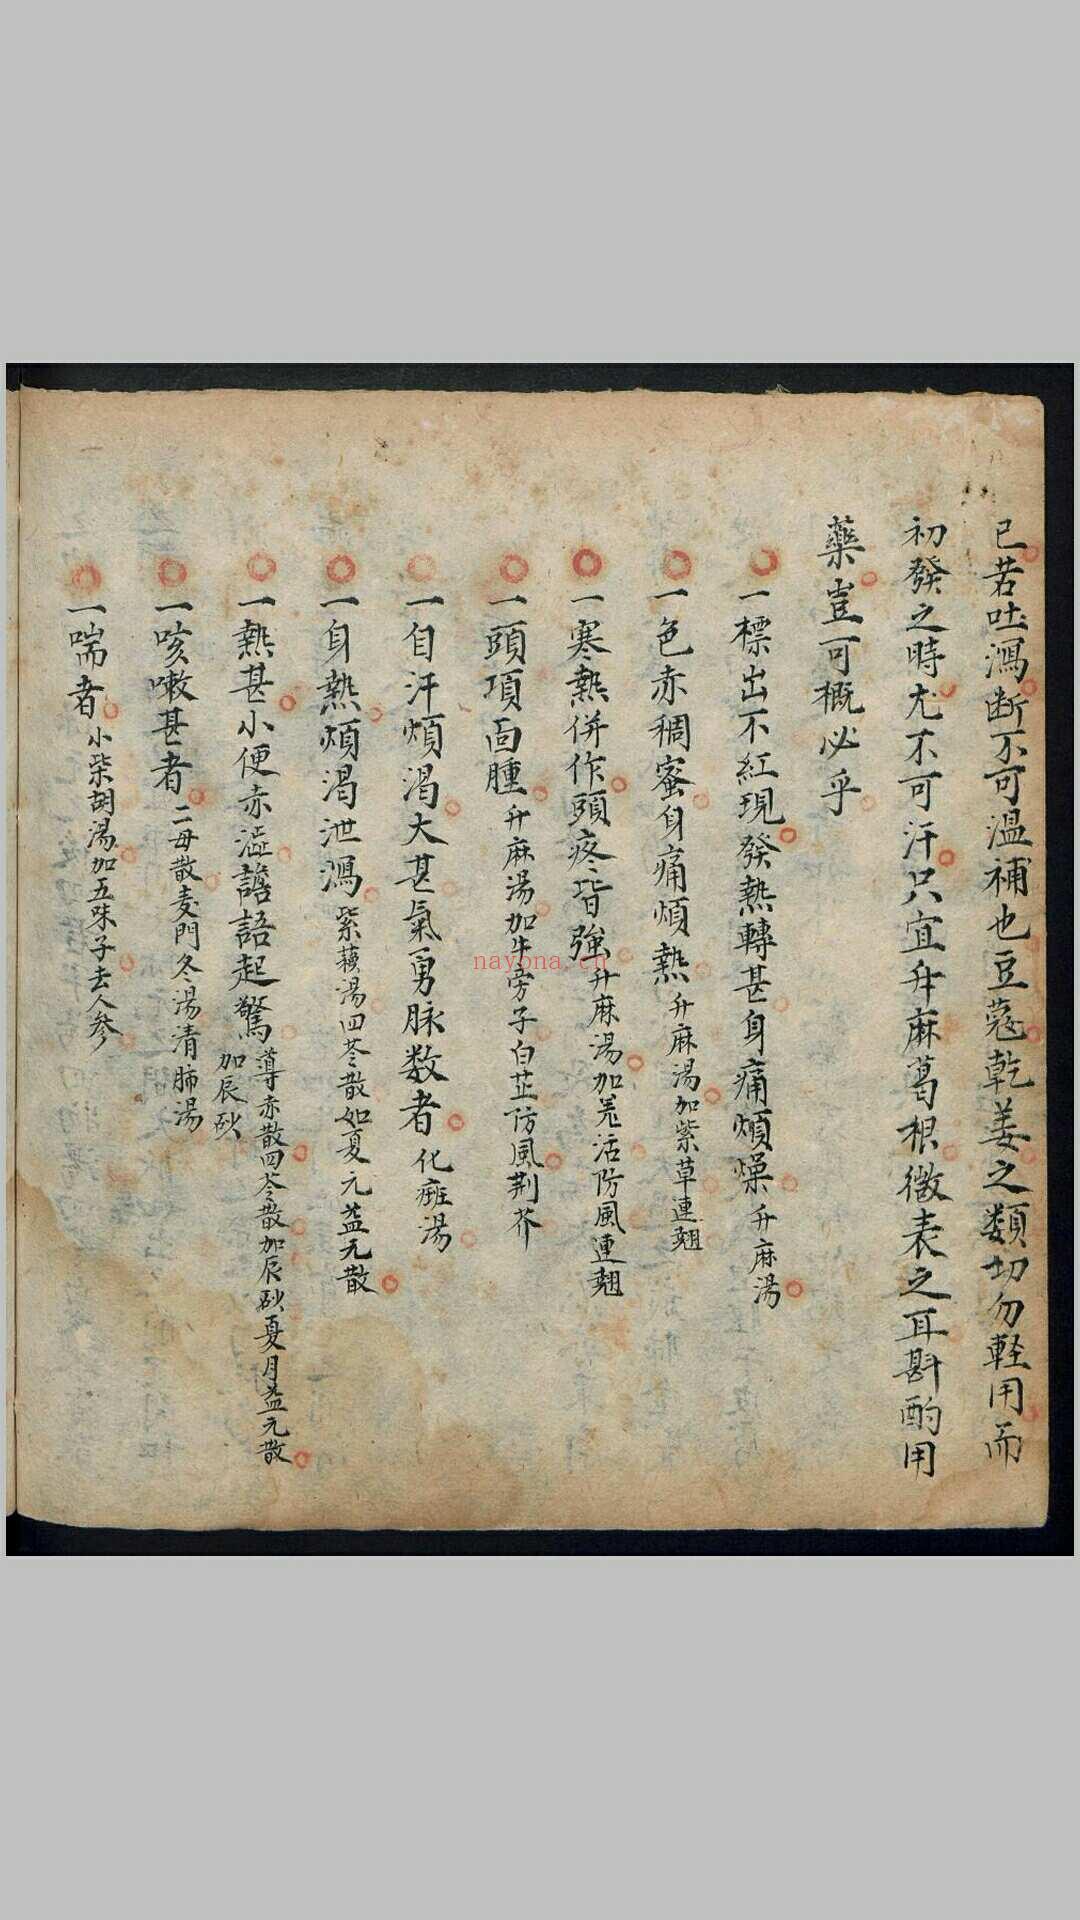 已若吐瀉断不可温補也豆蔻乾姜之類切勿軽用而
初發之時尤不可汗只宜升麻葛根微表之耳斟酌用
藥豈可概必乎
一標出不紅現發熱轉甚身痛煩燥升麻湯
一色赤稠蜜身痛煩熱升麻湯加紫草連翹
一寒熱併作頭疼皆強升麻湯加羌活防風連翹
一頭項面腫升麻湯加牛旁子白芷防風荆芥
一自汗煩渴大甚氣勇脉数者化癍湯
一身熱煩渴泄瀉紫蘓湯四苓散如夏元益元散
一熱甚小便赤澁譫語起驚導赤散四苓散加辰砂夏月益元散
加辰砂
一咳嗽甚者二母散麦門冬湯清肺湯
一喘者小柴胡湯加五味子去人參
nayona.cn